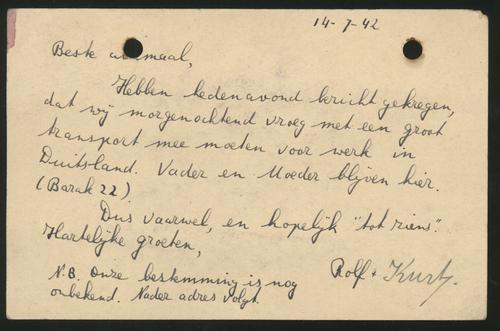 14-7-42
Beste allemaal,
Hebben hedenavond bericht gekregen,
dat wij morgenochtend vroeg met een groot
transport mee moeten voor werk in
Duitsland. Vader en Moeder blijven hier.
(Barak 22)
Dus vaarwel, en hopelijk "tot ziens".
Hartelijke groeten,
Rolf + Kurt.
N.B. Onze bestemming is nog
onbekend. Nader adres volgt.